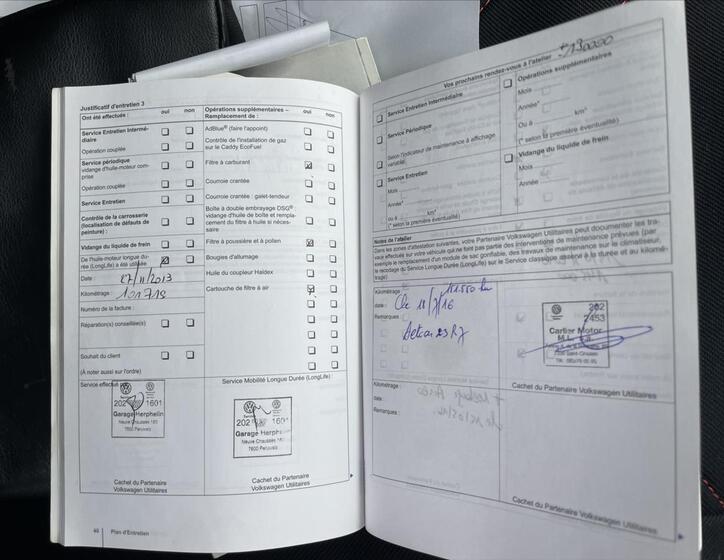 Justificatif d'entretien 3
Ont été effectués : oui non
Service Entretien Intermédiaire
Opération couplée
Service périodique
vidange d'huile-moteur comprise
Opération couplée
Service Entretien
Contrôle de la carrosserie
(localisation de défauts de
peinture) :
Vidange du liquide de frein
De l'huile-moteur longue durée
(LongLife) a été utilisée
Date : 27/11/2013
Kilométrage : 101718
Numéro de la facture :
Réparation(s) conseillée(s)
Souhait du client
(À noter aussi sur l'ordre)
Service effectué
202 1601
Garage Herphelin
Neuve Chaussée 160
7600 Peruwelz
Cachet du Partenaire
Volkswagen Utilitaires
46 Plan d'Entretien
Opérations supplémentaires –
Remplacement de : oui non
AdBlue® (faire l'appoint)
Contrôle de l'installation de gaz
sur le Caddy EcoFuel
Filtre à carburant
Courroie crantée
Courroie crantée : galet-tendeur
Boîte à double embrayage DSG® :
vidange d'huile de boîte et remplacement
du filtre à huile si nécessaire
Filtre à poussière et à pollen
Bougies d'allumage
Huile du coupleur Haldex
Cartouche de filtre à air
Service Mobilité Longue Durée (LongLife) :
202 1601
Garage Herphelin
Neuve Chaussée 160
7600 Peruwelz
Cachet du Partenaire
Volkswagen Utilitaires
Vos prochains rendez-vous à l'atelier
130000
Service Entretien Intermédiaire
Service Périodique
Selon l'indicateur de maintenance à affichage
variable)
Service Entretien
Mois
Année*
ou à km*
(* selon la première éventualité)
Opérations supplémentaires
Mois
Année*
Ou à km*
(* selon la première éventualité)
Vidange du liquide de frein
Mois
Année
Notes de l'atelier
Dans les zones d'attestation suivantes, votre Partenaire Volkswagen Utilitaires peut documenter les travaux
effectués sur votre véhicule qui ne font pas partie des interventions de maintenance prévues (par
exemple le remplacement d'un module de sac gonflable, des travaux de maintenance sur le climatiseur,
le recodage du Service Longue Durée (LongLife) sur le Service classique asservi à la durée et au kilométrage)
Kilométrage :
date : 18/7/16
Remarques :
202
2453
Cartier Motor
Cachet du Partenaire
Volkswagen Utilitaires
Kilométrage :
date :
Remarques :
Cachet du Partenaire
Volkswagen Utilitaires